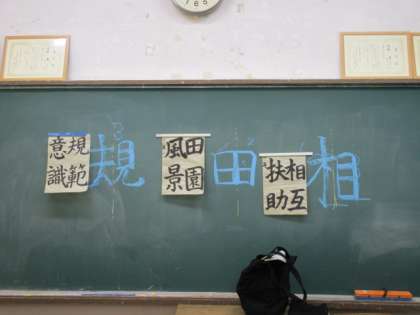 規範
意識
規
田園
風景
田
相互
扶助
相